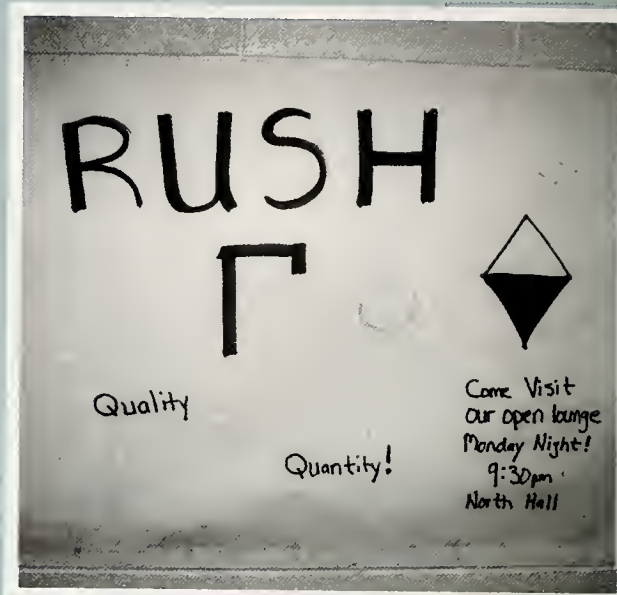 RUSH
Γ
Quality
Quantity!
Come Visit
our open lounge
Monday Night!
9:30pm
North Hall